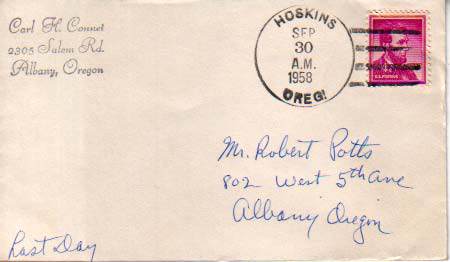 Carl H. Connet
2305 Salem Rd.
Albany, Oregon
HOSKINS
SEP
30
A.M.
1958
OREG.
U.S. POSTAGE
Mr. Robert Potts
802 West 5th Ave
Albany Oregon
Last Day